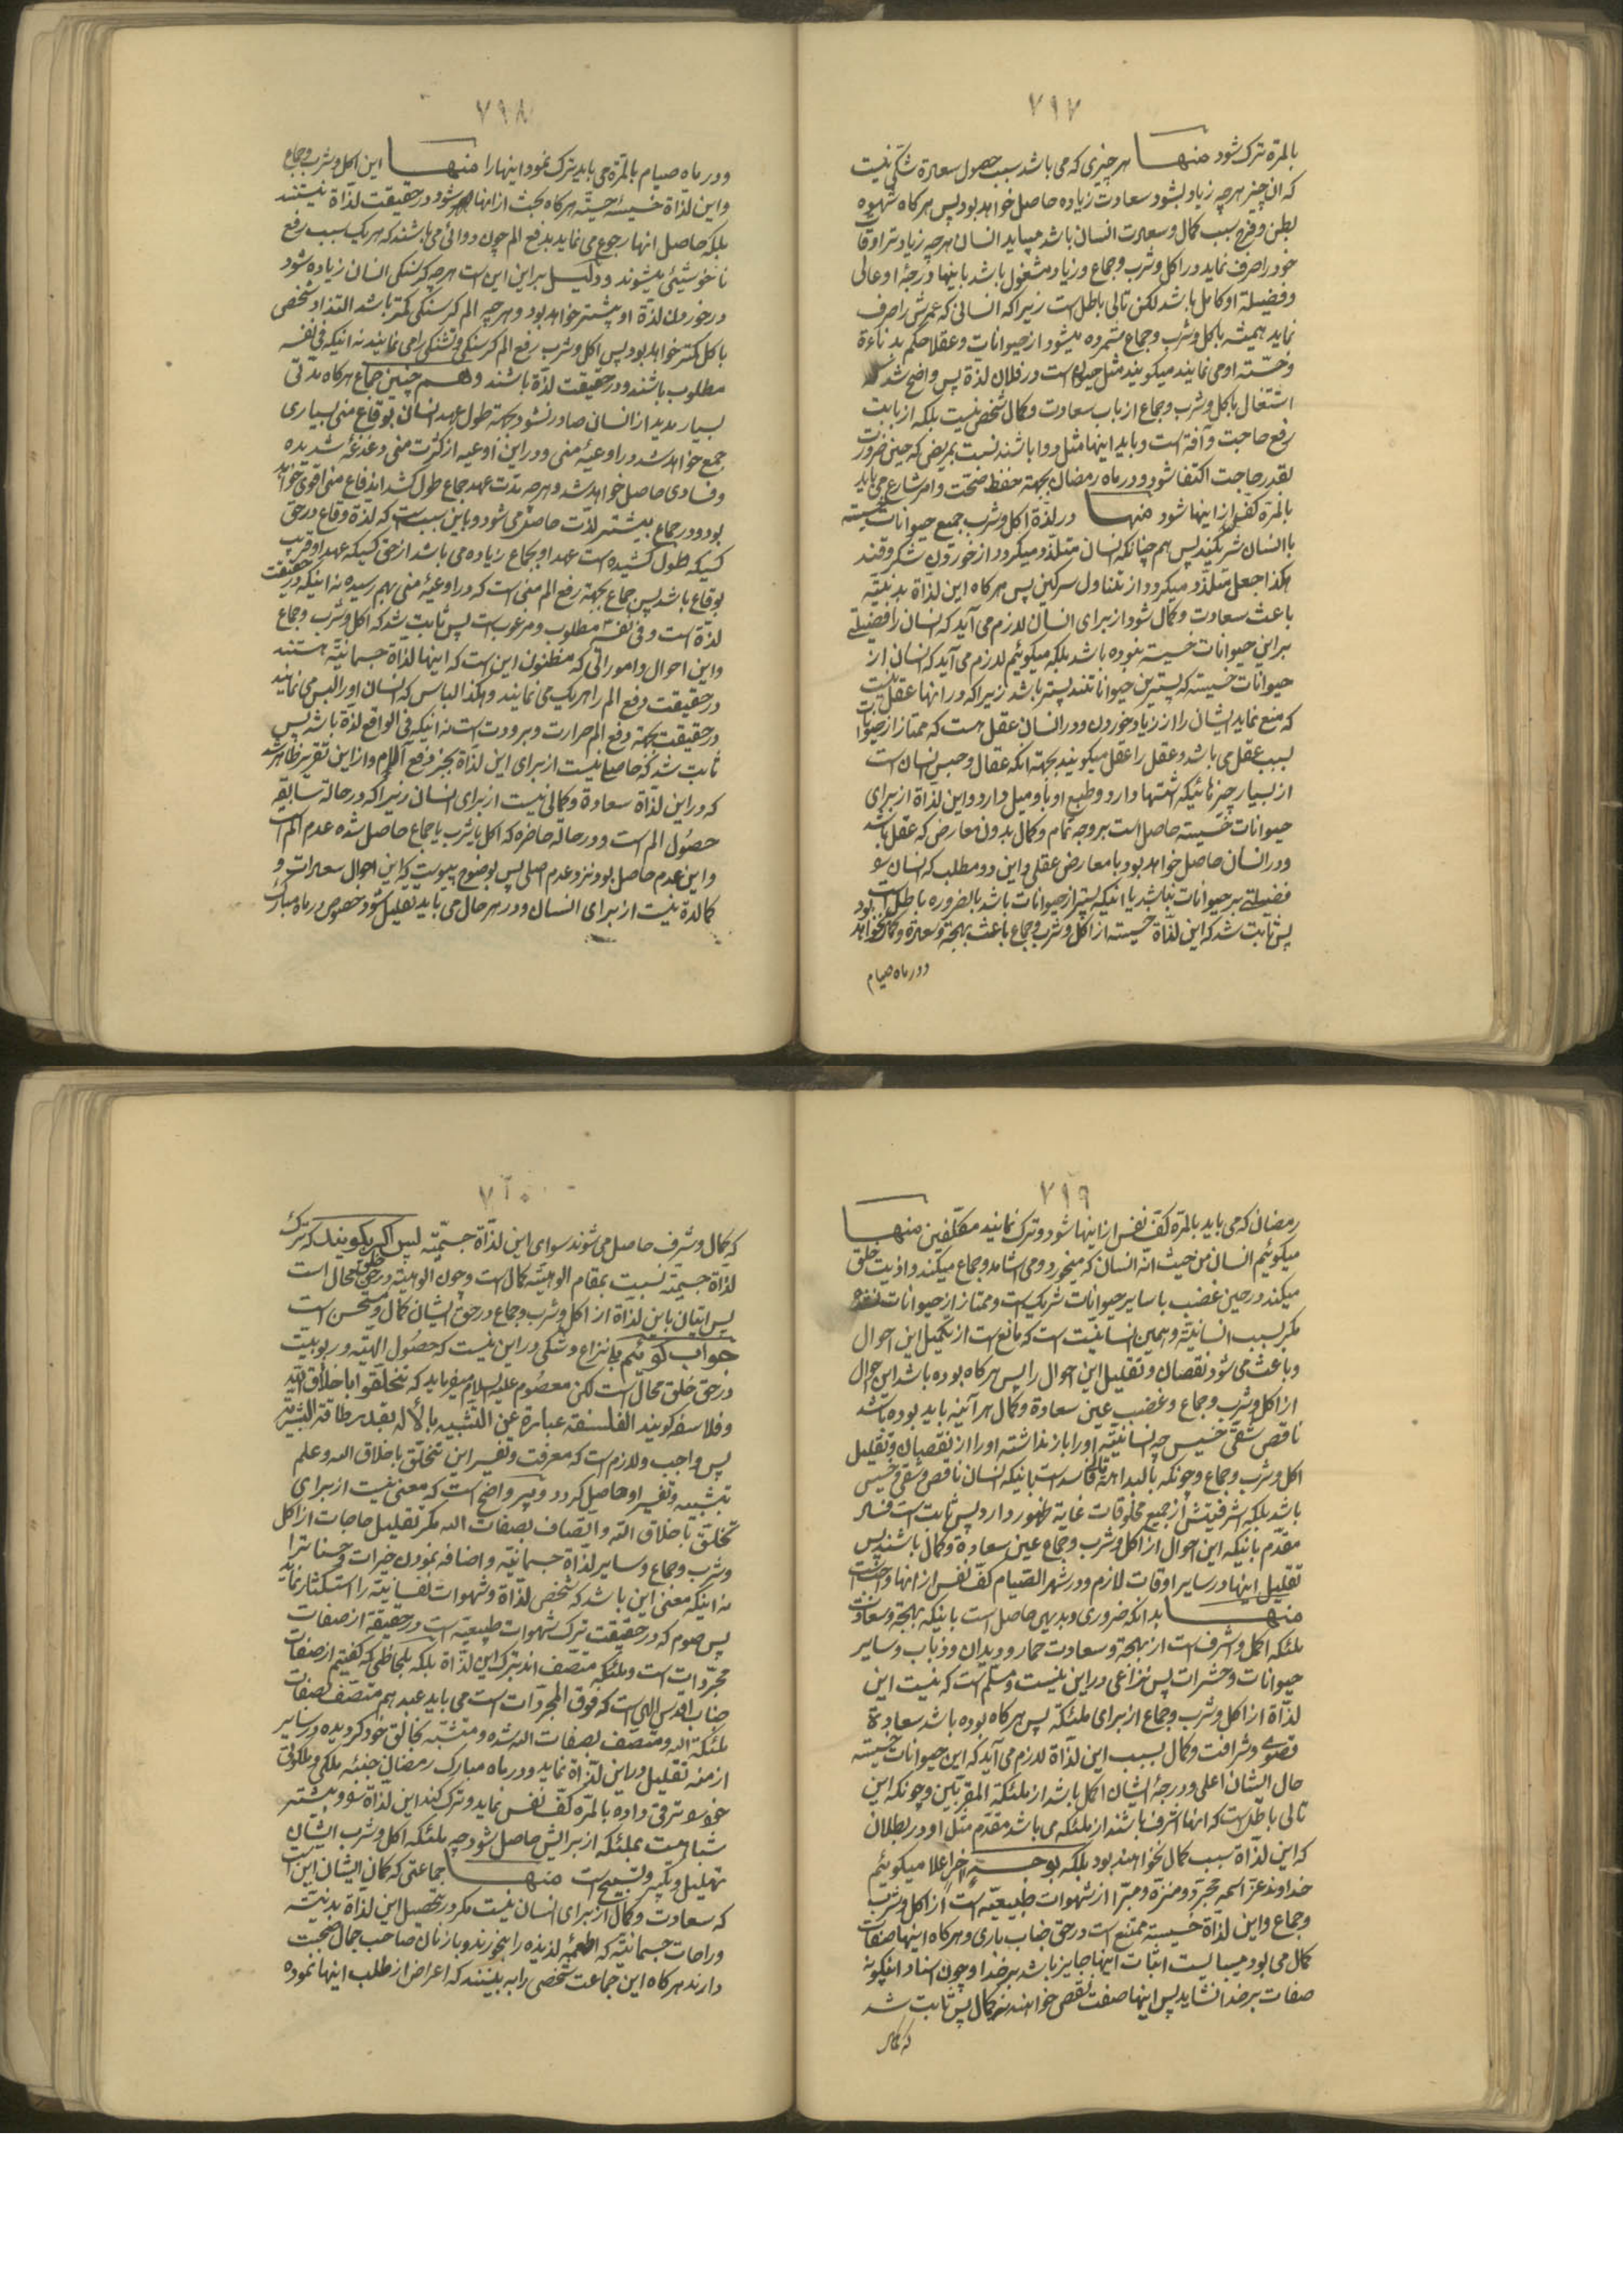 ۷۹۷
بالمرّه ترک شود منها هر چیزی که می باشد سبب حصول سعادة شکی نیست
که ان چیز هر چه زیاد بشود سعادت زیاده حاصل خواهد بود پس هر کاه شهوة
بطن و فرج سبب کمال و سعادت انسان باشد میباید انسان هر چه زیادتر اوقات
خود را صرف نماید در اکل و شرب و جماع و زیاد مشغول باشد باینها درجۀ او عالی
و فضیلة او کامل باشد لکن تالی باطل است زیرا که انسانی که عمرش را صرف
نماید همیشه باکل و شرب و جماع شمرده میشود از حیوانات و عقلا حکم بدنائة
و خسّة او می نمایند میکویند مثل حیوان است در فلان لذة پس واضح شد که
اشتغال باکل و شرب و جماع از باب سعادت و کمال شخص نیست بلکه از بابت
رفع حاجت و آفة است و باید اینها مثل دوا باشند نسبت بمریض که حین ضرورت
بقدر حاجت اکتفا شود و در ماه رمضان بجهة حفظ صحّت و امر شارع می باید
بالمرّة کفّ نفس از اینها شود منها در لذة اکل و شرب جمیع حیوانات خسیسه
با انسان شریکند پس هم چنانکه انسان متلذّذ میکردد از خوردن شکر و قند
هکذا جعل متلذّذ میکردد از تناول سرکین پس هر کاه این لذاة بدنیّه
باعث سعادت و کمال شود از برای انسان لازم می آید که انسان را فضیلتے
بر این حیوانات خسیسه نبوده باشد بلکه میکوئیم لازم می آید که انسان از
حیوانات خسیسه که پسترین حیواناتند پستر باشد زیرا که در انها عقل نیست
که منع نماید ایشان را از زیاد خوردن و در انسان عقل هست که ممتاز از حیوانات
بسبب عقل می باشد و عقل را عقل میکویند بجهة انکه عقال و حبس انسان است
از بسیار چیزهائیکه اشتها دارد و طبع او باو میل دارد و این لذاة از برای
حیوانات خسیسه حاصل است بر وجه تمام و کمال بدون معارض که عقل باشد
و در انسان حاصل خواهد بود با معارض عقلی و این دو مطلب که انسان
فضیلتے بر حیوانات نباشد یا انیکه پستر از حیوانات باشد بالضروره باطل است
پس ثابت شد که این لذّاة خسیسه از اکل و شرب و جماع باعث بهجة و سعادة و کمال نخواهد بود
و در ماه صیام
۷۹۸
و در ماه صیام بالمرّة می باید ترک نمود اینها را منها این اکل و شرب و جماع
و این لذّاة خسیسۀ حسیّه هر کاه بحث از انها شود در حقیقت لذّاة نیستند
بلکه حاصل انها رجوع می نماید بدفع الم چون دوائی می باشند که هر یک سبب رفع
ناخوشیئی میشوند و دلیل بر این این است هر چه کرسنکی انسان زیاده شود
در خوردن لذّة او پیشتر خواهد بود و هر چه الم کرسنکی کمتر باشد التذاذ شخص
باکل کمتر خواهد بود پس اکل و شرب رفع الم کرسنکی و تشنکی را می نمایند نه انیکه فی نفسه
مطلوب باشند و در حقیقت لذّة باشند و هم چنین جماع هر کاه مدتی
بسیار مدید از انسان صادر نشود بجهة طول عهد انسان بوقاع منی بسیاری
جمع خواهد شد در اوعیۀ منی و در این اوعیه از کثرت منی دغدغۀ شدیده
و فسادی حاصل خواهد شد و هر چه مدّت عهد جماع طول کشد اندفاع منی اقوی خواهد
بود و در جماع بیشتر لذّت حاصل می شود و باین سبب است که لذة وقاع در حق
کسیکه طول کشیده است عهد او بجماع زیاده می باشد از حق کسیکه عهد او قریب
بوقاع باشد پس جماع بجهة رفع الم منی است که در اوعیۀ منی بهم رسیده نه اینکه در حقیقت
لذّة است و فی نفسه مطلوب و مرغوب است پس ثابت شد که اکل و شرب و جماع
و این احوال و اموراتی که مظنون این است که اینها لذّاة جسمانیّه هستند
در حقیقت دفع الم را هر یک می نمایند و هکذا لباس که انسان او را لبس می نمایند
در حقیقت بجهة دفع الم حرارت و برودت است نه انیکه فی الواقع لذّة باشد پس
ثابت شد که حاصلی نیست از برای این لذّاة بجز دفع آلام و از این تقریر ظاهر شد
که در این لذّاة سعادة و کمالی نیست از برای انسان زیرا که در حالة سابقه
حصول الم است و در حالة حاضره که اکل یا شرب یا جماع حاصل شده عدم الم است
و این عدم حاصل بود نزد عدم اصلی پس بوضوح پیوست که این احوال سعادات و
کمالاة نیست از برای انسان و در هر حال می باید تقلیل شود خصوص در ماه مبارک
۷۹۹
رمضان که می باید بالمرّة کفّ نفس از اینها شود و ترک نمایند مکلّفین منها
میکوئیم انسان من حیث انّه انسان که میخورد و می اشامد و جماع میکند و اذیت خلق
میکند در حین غضب با سایر حیوانات شریک است و ممتاز از حیوانات نشده
مکر بسبب انسانیّة و همین انسانیّت است که مانع است از تکمیل این احوال
و باعث می شود نقصان و تقلیل این احوال را پس هر کاه بوده باشد این احوال
از اکل و شرب و جماع و غضب عین سعادة و کمال هر آئینه باید بوده باشد
ناقص شقیّ خسیس چه انسانیّة او را باز نداشته او را از نقصان و تقلیل
اکل و شرب و جماع و چونکه بالبداهة فاسد است انیکه انسان ناقص و شقی و خسیس
باشد بلکه اشرفیّتش از جمیع مخلوقات غایة ظهور دارد پس ثابت است فساد
مقدّم بانیکه این احوال از اکل و شرب و جماع عین سعادة و کمال باشند پس
تقلیل اینها در سایر اوقات لازم و در شهر الصّیام کفّ نفس از انها واجب است
منها بدانکه ضروری و بدیهی حاصل است باینکه بهجة و سعادت
ملئکه اکمل و اشرف است از بهجة و سعادت حمار و دیدان و ذباب و سایر
حیوانات و حشرات پس نزاعی در این نیست و مسلّم است که نیست این
لذّاة از اکل و شرب و جماع از برای ملئکه پس هر کاه بوده باشد سعادة
قصوے و شرافت و کمال بسبب این لذّاة لازم می آید که این حیوانات خسیسه
حال ایشان اعلی و درجۀ ایشان اکمل باشد از ملئکة المقرّبین و چونکه این
تالی باطل است که انها اشرف باشند از ملئکه می باشد مقدّم مثل او در بطلان
که این لذّاة سبب کمال نخواهند بود بلکه بوجه اخر اعلا میکوئیم
خداوند عزّ اسمه مجرّد و منزّه و مبرّا از شهوات طبیعیّه است از اکل و شرب
و جماع و این لذّاة خسیسه ممتنع است در حق جناب باری و هر کاه اینها صفات
کمال می بود میبایست اثبات اینها جایز باشد بر خدا و چون اسناد اینکونه
صفات بر خدا نشاید پس اینها صفت نقص خواهند نه کمال پس ثابت شد
که کمال
۷۲۰
که کمال و شرف حاصل می شوند سوای این لذّاة جسمیّه پس اکر بکویند که ترک
لذّاة جسمیّه نسبت بمقام الوهیّة کمال است و چون الوهیّة در حق خلق محال است
پس اتیان باین لذّاة از اکل و شرب و جماع در حق ایشان کمال و مستحسن است
جواب کوئیم که نزاع و شکی در این نیست که حصول الهیّه و ربوبیّت
در حق خلق محال است لکن معصوم علیه السلام میفرماید که تتخلّقوا باخلاق الله
و فلاسفه کویند الفلسفه عبارة عن التشبیه بالاله بقدر طاقة البشریّة
پس واجب و لازم است که معرفت و تفسیر این تخلّق باخلاق الله و علم
بتشبیه و تفسیر او حاصل کردد و پر واضح است که معنی نیست از برای
تخلّق باخلاق الله و اتصاف بصفات الله مکر تقلیل حاجات از اکل
و شرب و جماع و سایر لذّاة جسمانیّه و اضافه نمودن خیرات و حسنات را
نه اینکه معنی این باشد که شخص لذّاة و شهوات نفسانیّه را استکثار نماید
پس صوم که در حقیقت ترک شهوات طبیعیّه است در حقیقة از صفات
مجرّدات است و ملئکه متّصف اند بترک این لذّاة بلکه بلحاظی که کفتیم از صفات
جناب اقدس الهی است که فوق المجرّدات است می باید عبد هم متّصف بصفات
ملئکة الله و متّصف بصفات الله شده و متشبّه بخالق خود کردیده در سایر
ازمنه تقلیل در این لذّاة نماید و در ماه مبارک رمضان جنبۀ ملکی و ملکوتی
خود ترقی داده بالمرّه کفّ نفس نماید و ترک کند این لذّاة و بیشتر
شباهت بملئکه از برایش حاصل شود چه ملئکه اکل و شرب ایشان
تهلیل و تکبیر و تسبیح است منها جماعتی که کمان ایشان این است
که سعادت و کمال از برای انسان نیست مکر در تحصیل این لذّاة بدنیّه
و راحات جسمانیّه که اطعمۀ لذیذه را بخورند و با زنان صاحب جمال صحبت
دارند هر کاه این جماعت شخصی را به بینند که اعراض از طلب اینها نموده